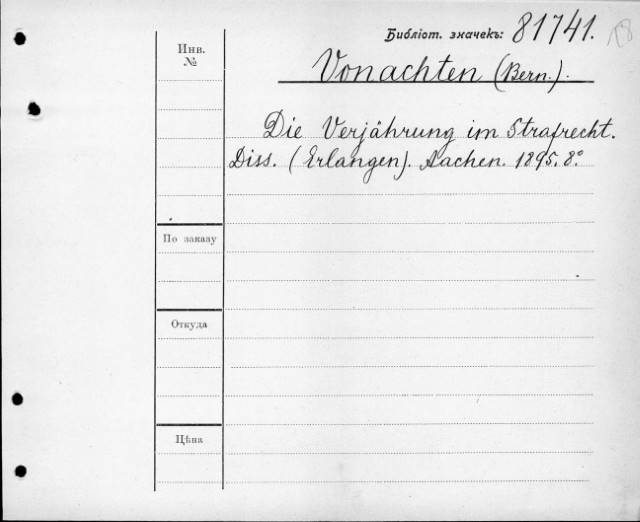 Библіот. значекъ: 81741.
18
Инв.
№
Vonachten (Bern.).
Die Verjährung im Strafrecht.
Diss. (Erlangen). Aachen. 1895. 8°
По заказу
Откуда
Цѣна